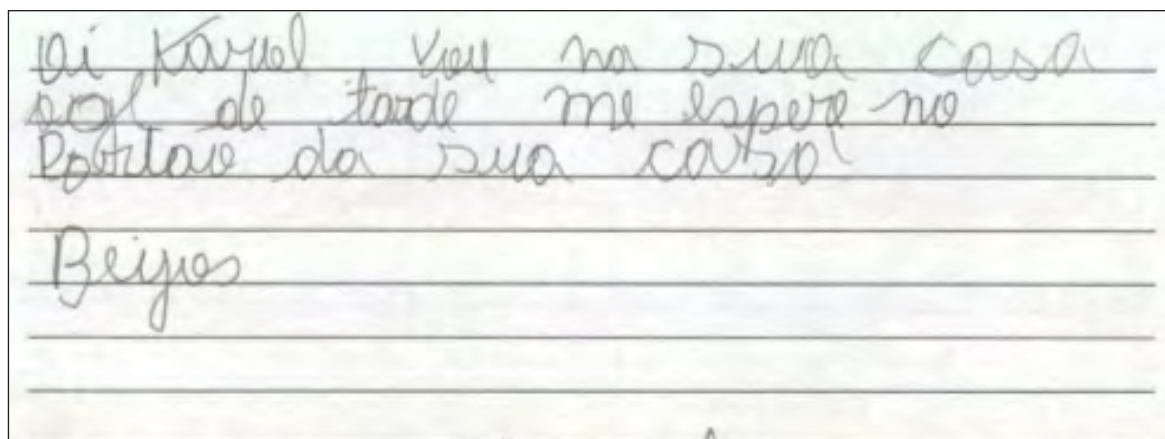 Oi Karuel vou na sua casa
de tarde me espere no
Portao da sua casa
Beijos